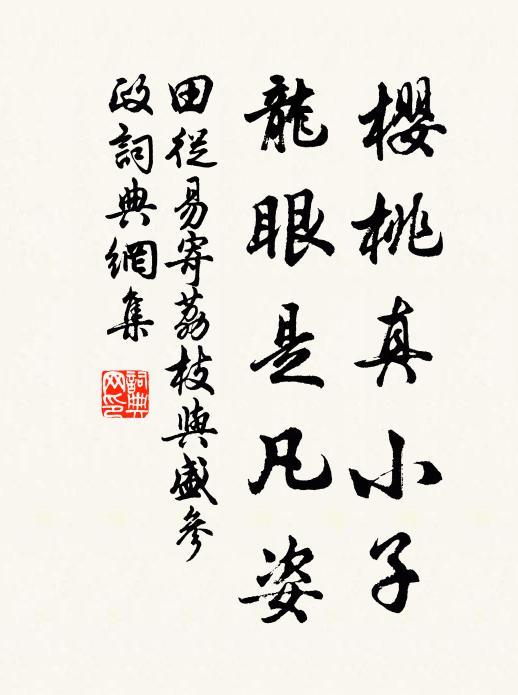 櫻桃真小子
龍眼是凡姿
田從易寄荔枝與盛參
政詞典網集
詞典網印